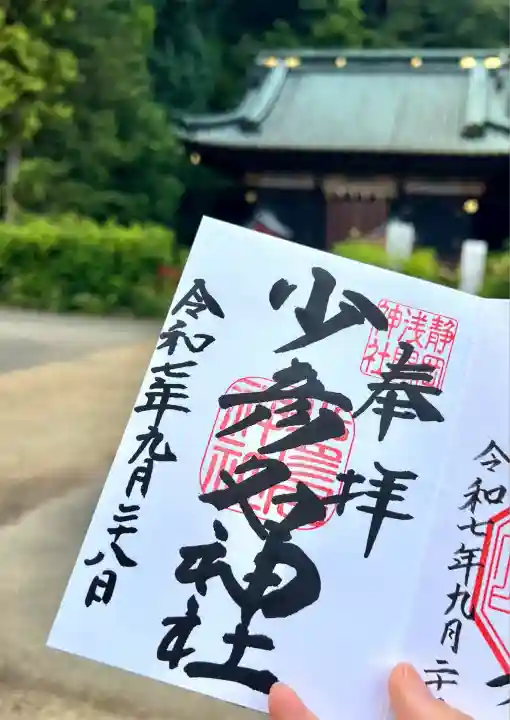 奉拝
静岡浅間神社
少彦名神社
令和七年九月二十八日
令和七年九月二十